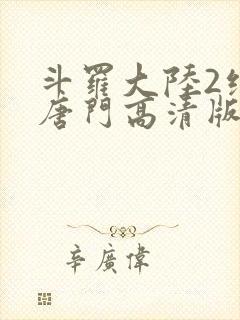 斗羅大陸2
唐門高清版
辛廣偉